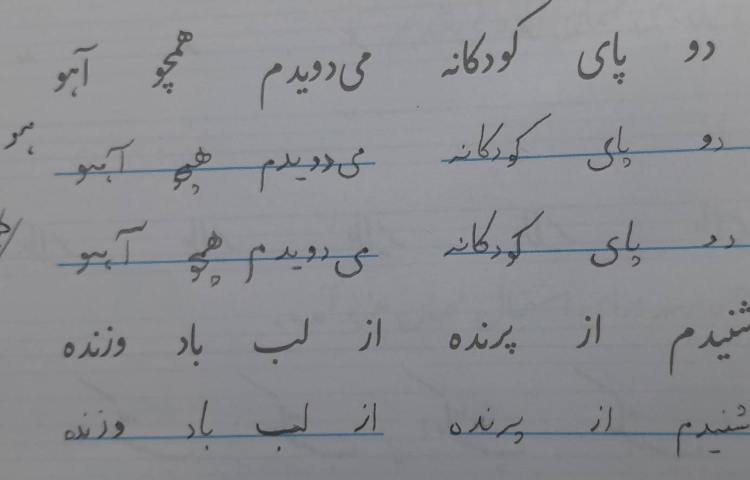 دو پای کودکانه می‌دویدم همچو آهو
دو پای کودکانه می‌دویدم همچو آهو
هو
دو پای کودکانه می‌دویدم همچو آهو
شنیدم از پرنده از لب باد وزنده
شنیدم از پرنده از لب باد وزنده